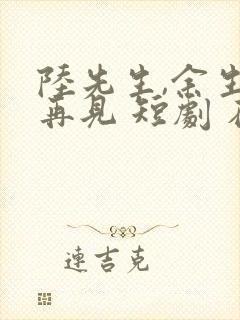 陸先生,余生
再見 短劇
連吉克